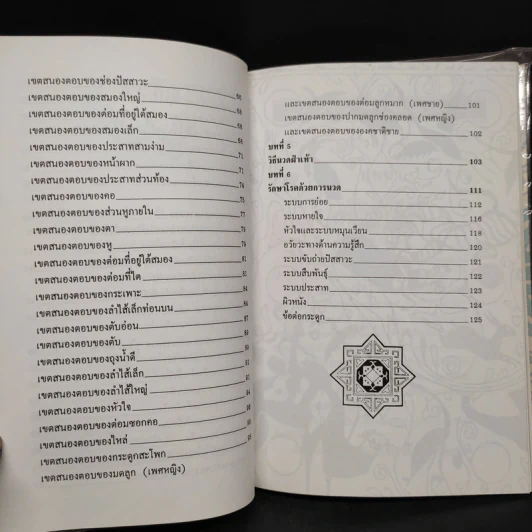 เขตสนองตอบของช่องปัสสาวะ
เขตสนองตอบของสมองใหญ่
เขตสนองตอบของต่อมที่อยู่ใต้สมอง
เขตสนองตอบของสมองเล็ก
เขตสนองตอบของประสาทสามง่าม
เขตสนองตอบของหน้าผาก
เขตสนองตอบของประสาทส่วนท้อง
เขตสนองตอบของคอ
เขตสนองตอบของส่วนหูภายใน
เขตสนองตอบของตา
เขตสนองตอบของหู
เขตสนองตอบของต่อมที่อยู่ใต้สมอง
เขตสนองตอบของต่อมที่ไต
เขตสนองตอบของกระเพาะ
เขตสนองตอบของลำไส้เล็กท่อนบน
เขตสนองตอบของตับอ่อน
เขตสนองตอบของตับ
เขตสนองตอบของถุงน้ำดี
เขตสนองตอบของลำไส้เล็ก
เขตสนองตอบของลำไส้ใหญ่
เขตสนองตอบของหัวใจ
เขตสนองตอบของต่อมซอกคอ
เขตสนองตอบของไหล่
เขตสนองตอบของกระดูกสะโพก
เขตสนองตอบของมดลูก (เพศหญิง)
และเขตสนองตอบของต่อมลูกหมาก (เพศชาย) 101
เขตสนองตอบของปากมดลูกช่องคลอด (เพศหญิง)
และเขตสนองตอบขององคชาติชาย 102
บทที่ 5
วิธีนวดฝ่าเท้า 103
บทที่ 6
รักษาโรคด้วยการนวด 111
ระบบการย่อย 112
ระบบหายใจ 116
หัวใจและระบบหมุนเวียน 118
อวัยวะทางด้านความรู้สึก 120
ระบบขับถ่ายปัสสาวะ 121
ระบบสืบพันธุ์ 122
ระบบประสาท 123
ผิวหนัง 124
ข้อต่อกระดูก 125